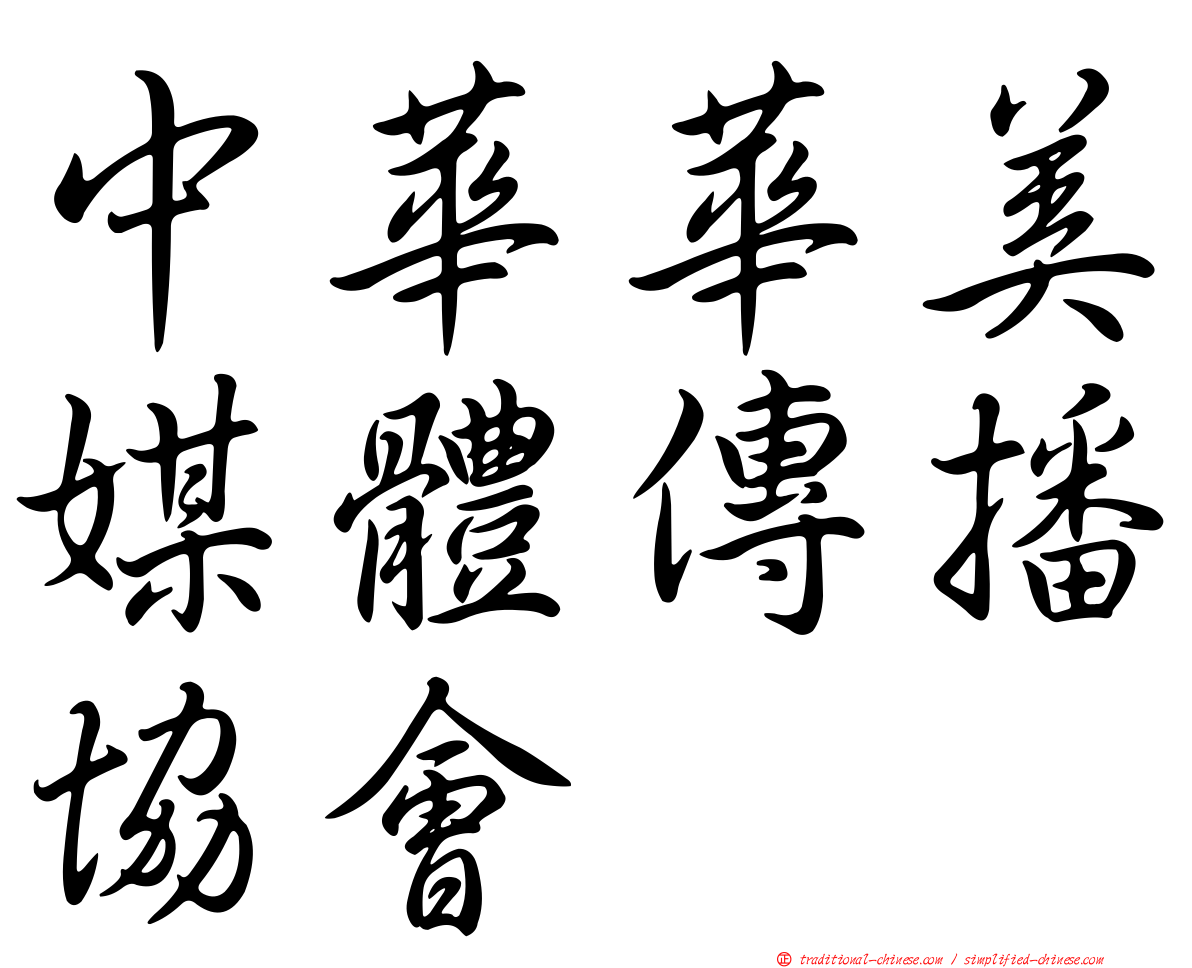 中華華美
媒體傳播
協會
正 traditional-chinese.com / simplified-chinese.com